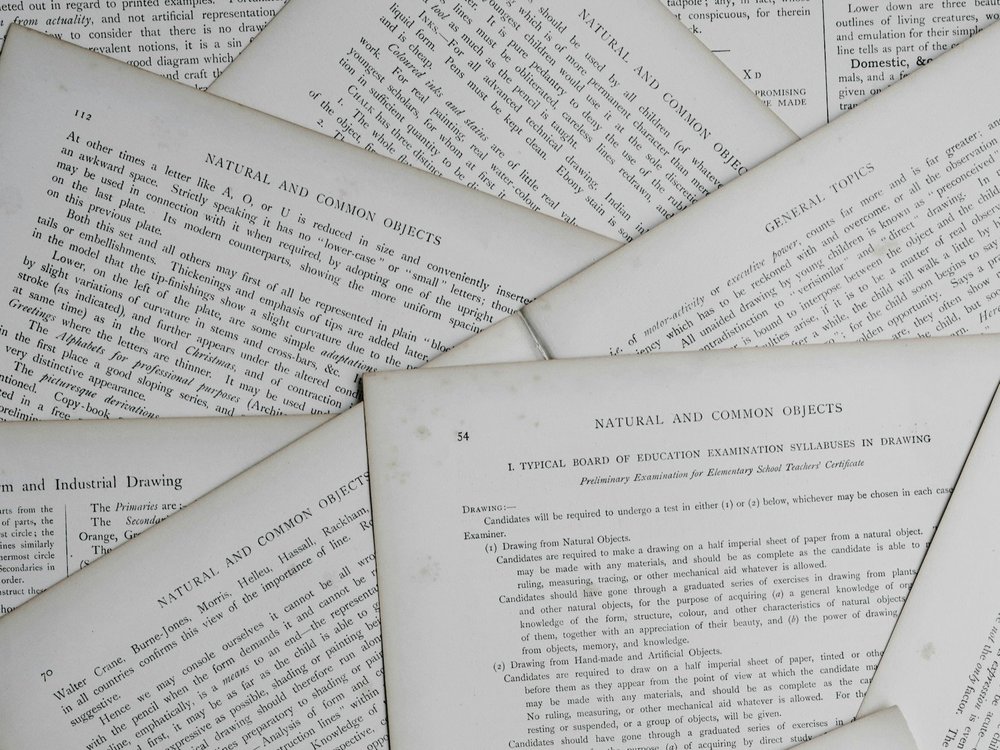 eted out in regard to printed examples.
from actuality, and not artificial representation
w to consider that there is no draw
revalent notions, it is a sin
good diagram which
and craft th
NATURAL AND COMMON OBJEC
should be used by all children (of whatever
which is of more permanent character than mere
youngest children would use it at the sole discretion
lines. It is pure pedantry to deny the use of the rubb
tool as much as the pencil, careless lines redrawn, and
INKS.—For all advanced technical drawing. Indian i
liquid form is taught. Ebony stain is som
and is cheap. Pens must be kept clean.
Coloured inks and stains are of little real val
work. For real painting, real water-colour
youngest scholars, for whom at first
tion in sufficient quantity to be
CHALK has three distinct
1. The wide range
of the object, whole
2. The
tadpole; any, in fact, whose
conspicuous, for therein
k.
X D
PROMISING
E MADE
Lower down are three beau
outlines of living creatures, wo
and emulation for their simple
line tells as part of the c
Domestic, &c
mals, and a f
given on
tran
112
NATURAL AND COMMON OBJECTS
At other times a letter like A, O, or U is reduced in size and conveniently inserted
an awkward space. Strictly speaking it has no "lower-case" or "small" letters; thos
may be used in connection with it when required, by adopting one of the upright
on the last plate. Its modern counterparts, showing the more uniform spacing
on this previous plate.
Both this set and all others may first of all be represented in plain "bloc
tails or embellishments. Thickenings and emphasis of tips are added later,
in the model that the tip-finishings show a slight curvature due to the
Lower, on the left of the plate, are some simple adaptations
by slight variations of curvature in stems and cross-bars, &c.
stroke (as indicated), and further appears under the altered cond
at same time) as in the word Christmas, and of contraction
Greetings where the letters are thinner. It may be used und
The Alphabets for professional purposes (Archi
in the first place a good sloping series, and
very distinctive appearance.
The picturesque derivations
ntioned. Copy-book
ted in a free
prelimin
GENERAL TOPICS
i.e. of motor-activity or executive power, counts far more and is far greater; an
iency which has to be reckoned with and overcome, or all the observation
All unaided drawing by young children is known as "preconceived"
ntradistinction to "verisimilar" and "direct" drawing.
is bound to interpose between the object and the child
ulties arise, if it is to be a matter of real observ
r a while, the child will walk a little by
for the child soon begins to say
olden opportunity. Says a p
re, they often show
e child, but,
Here
rm and Industrial Drawing
arts from the
of parts, the
irst circle; the
ines similarly
nermost circle
Secondaries in
order.
nstruct these
The Primaries are:—
The Secondar
Orange, Gr
The
70
NATURAL AND COMMON OBJECTS
Walter Crane, Burne-Jones, Morris, Helleu, Hassall, Rackham,
in all countries confirms this view of the importance of line. Ro
suggestive.
Hence we may console ourselves it cannot be all wro
pencil when the form demands it and cannot be
emphatically, is a means to an end—the representa
line, employed as far as the child is able to g
I first, it may be as shading or painting bei
expressive as possible, should therefore run alon
ical drawing preparatory to shading or pa
Analysis of form and
truction lines within
Knowledge of
54
NATURAL AND COMMON OBJECTS
I. TYPICAL BOARD OF EDUCATION EXAMINATION SYLLABUSES IN DRAWING
Preliminary Examination for Elementary School Teachers' Certificate
DRAWING:—
Candidates will be required to undergo a test in either (1) or (2) below, whichever may be chosen in each case
Examiner.
(1) Drawing from Natural Objects.
Candidates are required to make a drawing on a half imperial sheet of paper from a natural object.
may be made with any materials, and should be as complete as the candidate is able to
ruling, measuring, tracing, or other mechanical aid whatever is allowed.
Candidates should have gone through a graduated series of exercises in drawing from plants
and other natural objects, for the purpose of acquiring (a) a general knowledge of or
knowledge of the form, structure, colour, and other characteristics of natural objects
of them, together with an appreciation of their beauty, and (b) the power of drawing
from objects, memory, and knowledge.
(2) Drawing from Hand-made and Artificial Objects.
Candidates are required to draw on a half imperial sheet of paper, tinted or othe
before them as they appear from the point of view at which the candidate ma
may be made with any materials, and should be as complete as the can
No ruling, measuring, or other mechanical aid whatever is allowed. For the
resting or suspended, or a group of objects, will be given.
Candidates should have gone through a graduated series of exercises in
purpose of (a) of acquiring by direct study
expression is
the only factor.